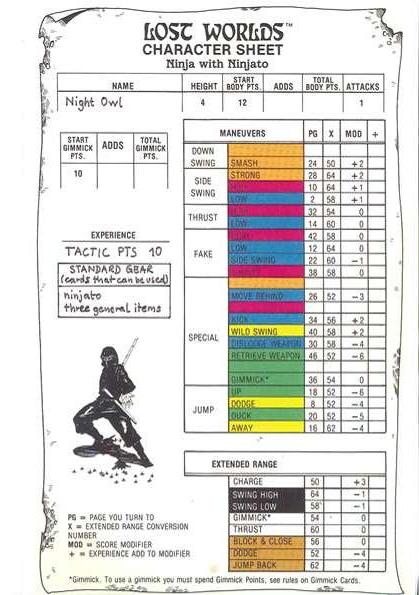 LOST WORLDS™
CHARACTER SHEET
Ninja with Ninjato
NAME HEIGHT START BODY PTS. ADDS TOTAL BODY PTS. ATTACKS
Night Owl 4 12 1
START GIMMICK PTS. ADDS TOTAL GIMMICK PTS.
10
EXPERIENCE
TACTIC PTS 10
STANDARD GEAR
(cards that can be used)
ninjato
three general items
MANEUVERS PG X MOD +
DOWN SWING
SMASH 24 50 +2
SIDE SWING
STRONG 28 64 +2
10 64 +1
LOW 2 58 +1
THRUST
32 54 0
LOW 14 60 0
FAKE
42 58 0
LOW 12 64 0
SIDE SWING 22 60 –1
38 58 0
SPECIAL
MOVE BEHIND 26 52 –3
KICK 34 56 +2
WILD SWING 40 58 +2
DISLODGE WEAPON 30 58 –4
RETRIEVE WEAPON 46 52 –6
GIMMICK* 36 54 0
JUMP
UP 18 52 –6
DODGE 8 52 –4
DUCK 20 52 –5
AWAY 16 62 –4
EXTENDED RANGE
CHARGE 50 +3
SWING HIGH 64 –1
SWING LOW 58 –1
GIMMICK* 54 0
THRUST 60 0
BLOCK & CLOSE 56 0
DODGE 52 –4
JUMP BACK 62 –4
PG = PAGE YOU TURN TO
X = EXTENDED RANGE CONVERSION
NUMBER
MOD = SCORE MODIFIER
+ = EXPERIENCE ADD TO MODIFIER
*Gimmick. To use a gimmick you must spend Gimmick Points, see rules on Gimmick Cards.